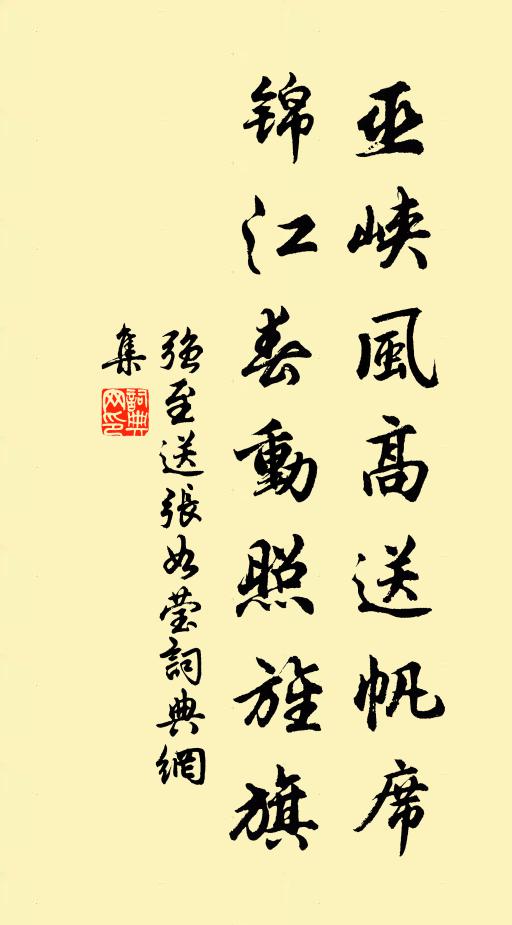 巫峽風高送帆席
錦江春動照旌旗
强至送張如瑩詞典網
集
詞典
网印